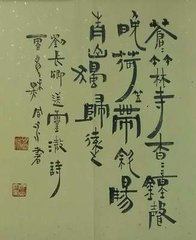 蒼々竹林寺杳々鐘聲
晚荷笠帶斜陽
青山獨歸遠
劉長卿送靈澈詩
書